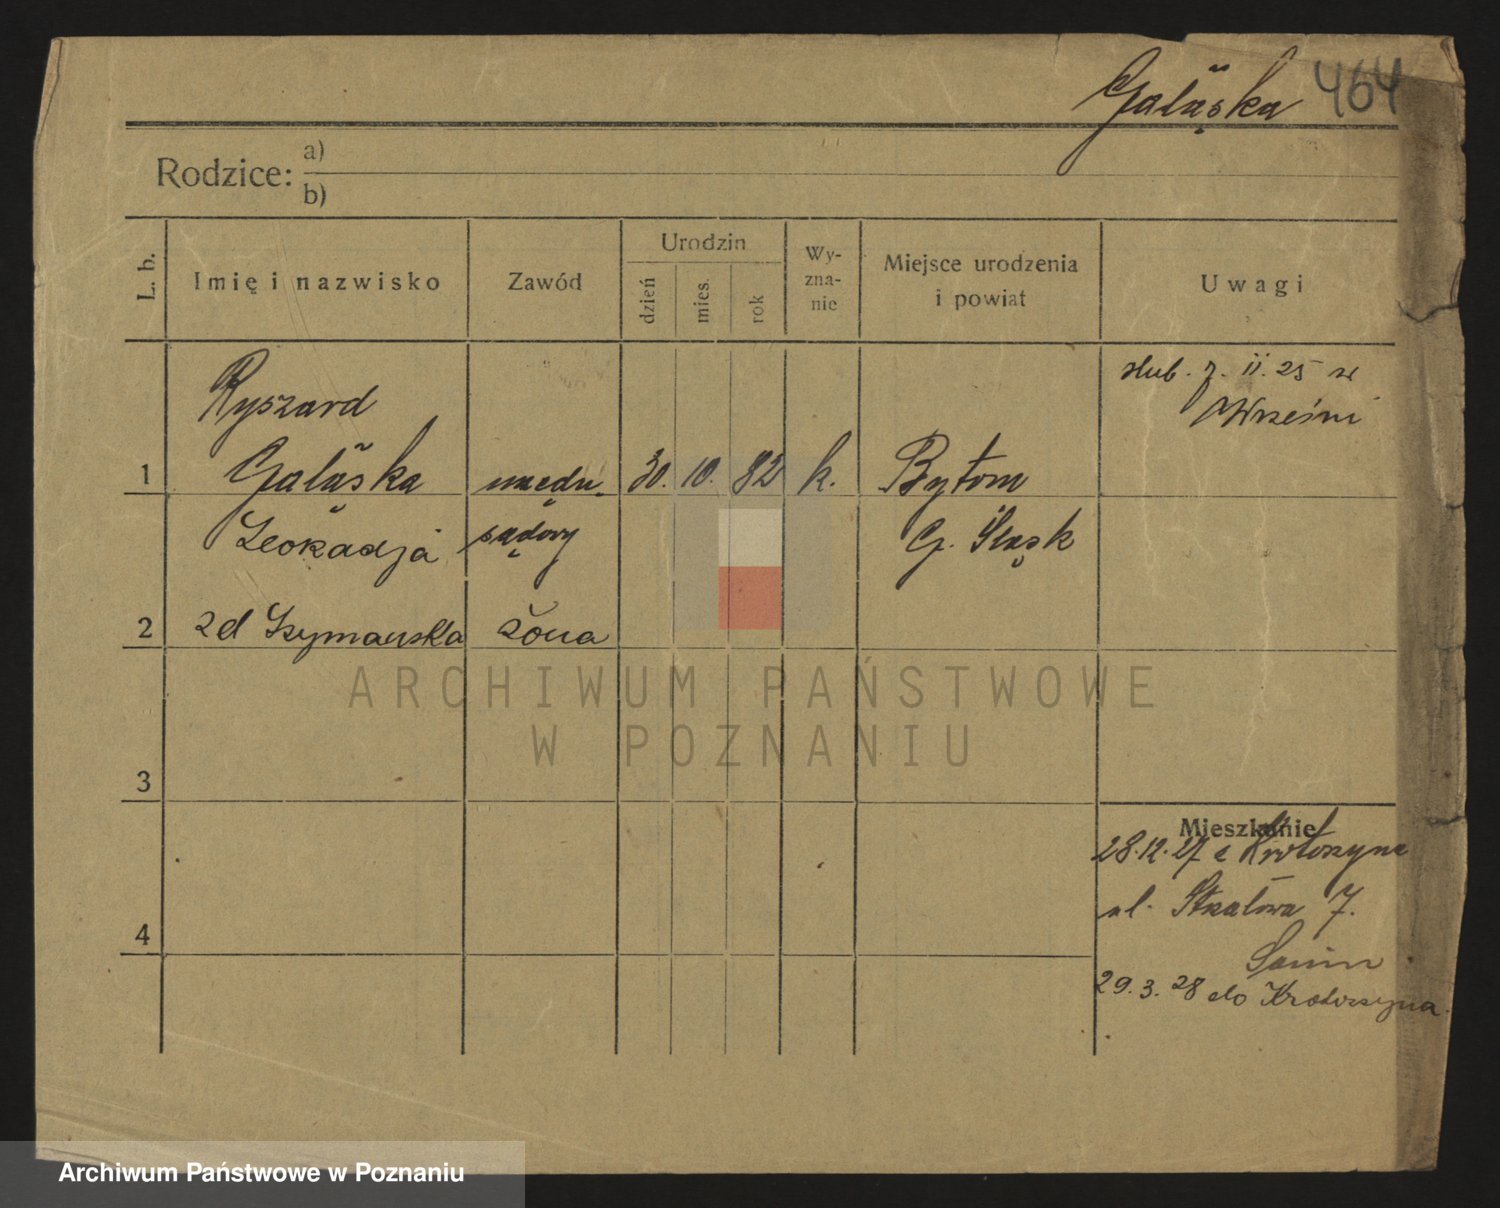 Galąska 464
Rodzice: a)
b)
L. b.
Imię i nazwisko
Zawód
Urodzin
dzień
mies.
rok
Wy-
zna-
nie
Miejsce urodzenia
i powiat
Uwagi
ślub. 7. II. 25 w
Wrześni
Ryszard
1 Galąska urzędn. 30. 10. 82 k. Bytom
Leokadja sądowy G. Śląsk
2 zd Szymańska żona
3
Mieszkanie
28.12.27 z Krotoszyna
ul. 7.
4
29.3.28 do Krotoszyna.
ARCHIWUM PAŃSTWOWE
W POZNANIU
Archiwum Państwowe w Poznaniu